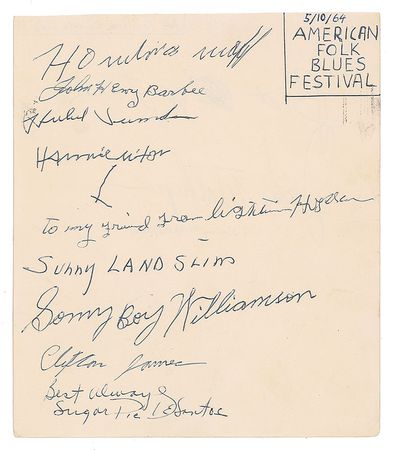 5/10/64
AMERICAN
FOLK
BLUES
FESTIVAL
John Henry Barbee
Hubert Sumlin
Hammie nixon
to my friend from lightnin Hopkins
SUNNY LAND SLIM
Sonny Boy Williamson
Clifton James
Best always
Sugar Pie DeSantos